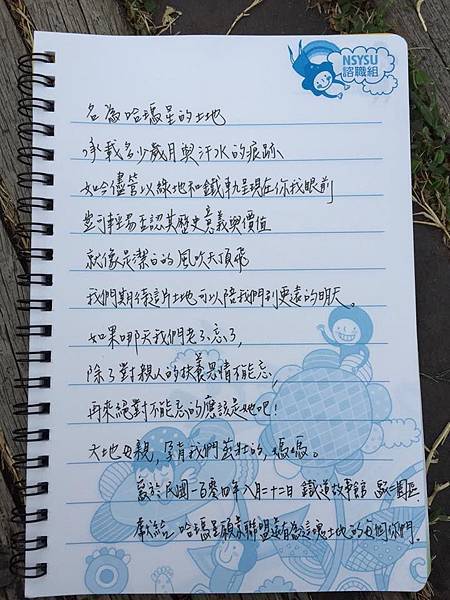 NSYSU
諮職組
名為哈瑪星的土地
承載多少歲月與汗水的痕跡、
如今儘管以綠地和鐵軌呈現在你我眼前
豈可輕易否認其歷史意義與價值
就像是潔白的風吹天頂飛
我們期待這片土地可以陪我們到更遠的明天。
如果哪天我們老了忘了，
除了對親人的扶養恩情不能忘，
再來絕對不能忘的應該是她吧！
大地母親，孕育我們茁壯的媽媽。
寫於民國一百零四年八月二十二日 鐵道故事館 園區
獻給 哈瑪星顧家聯盟還有為這塊土地的每個你們.